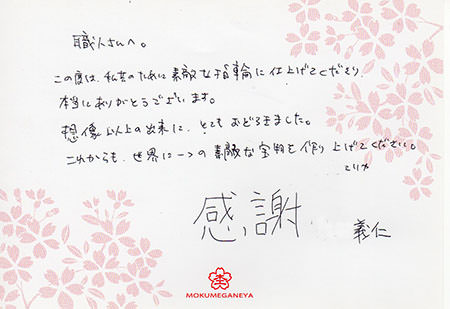 職人さんへ。
この度は、私共のために素敵な指輪に仕上げてくださり
本当にありがとうございます。
想像以上の出来に、とてもおどろきました。
これからも、世界に一つの素敵な宝物を作り上げてください。
感謝
義仁
MOKUMEGANEYA